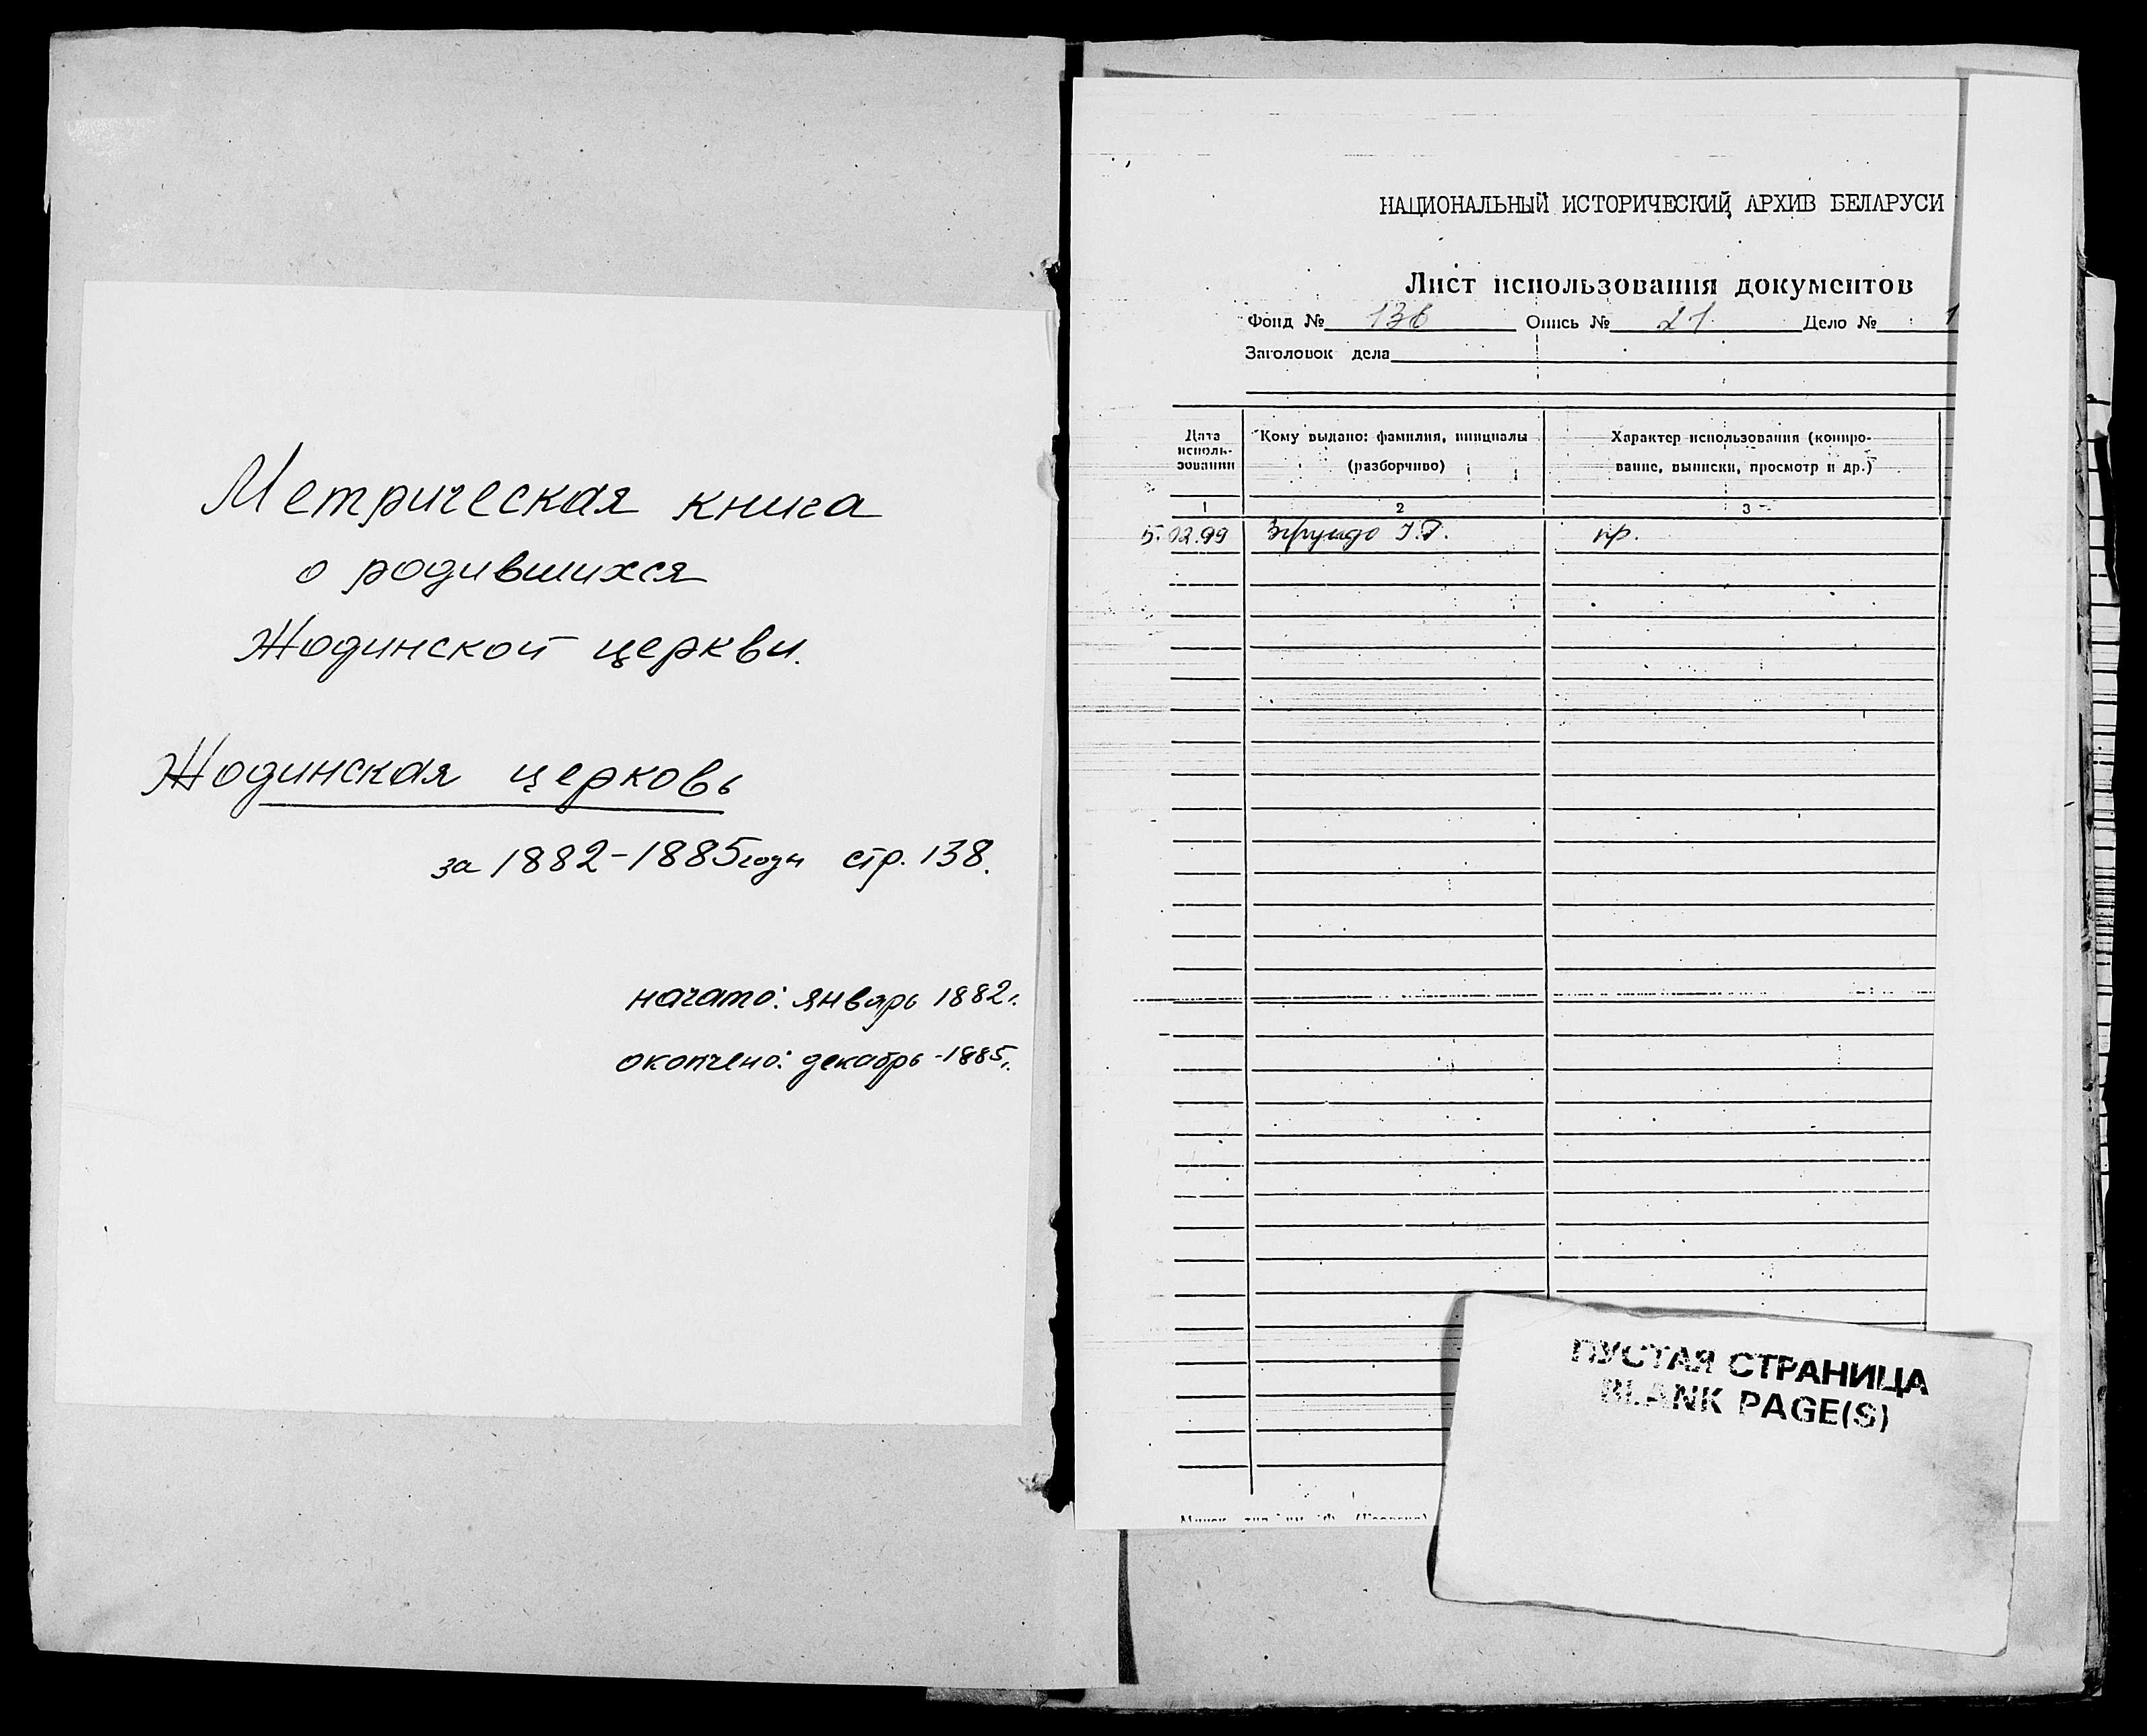 Метрическая книга
о родившихся
Жодинской церкви.
Жодинская церковь
за 1882-1885 годы стр. 138.
начато: январь 1882г.
окончено: декабрь-1885г.
НАЦИОНАЛЬНЫЙ ИСТОРИЧЕСКИЙ АРХИВ БЕЛАРУСИ
Лист использования документов
Фонд № 136 Опись № 21 Дело № 1
Заголовок дела
Дата исполь-зования
Кому выдано: фамилия, инициалы
(разборчиво)
Характер использования (копиро-
вание, выписки, просмотр и др.)
1 2 3
5.02.99 пр.
ПУСТАЯ СТРАНИЦА
BLANK PAGE(S)